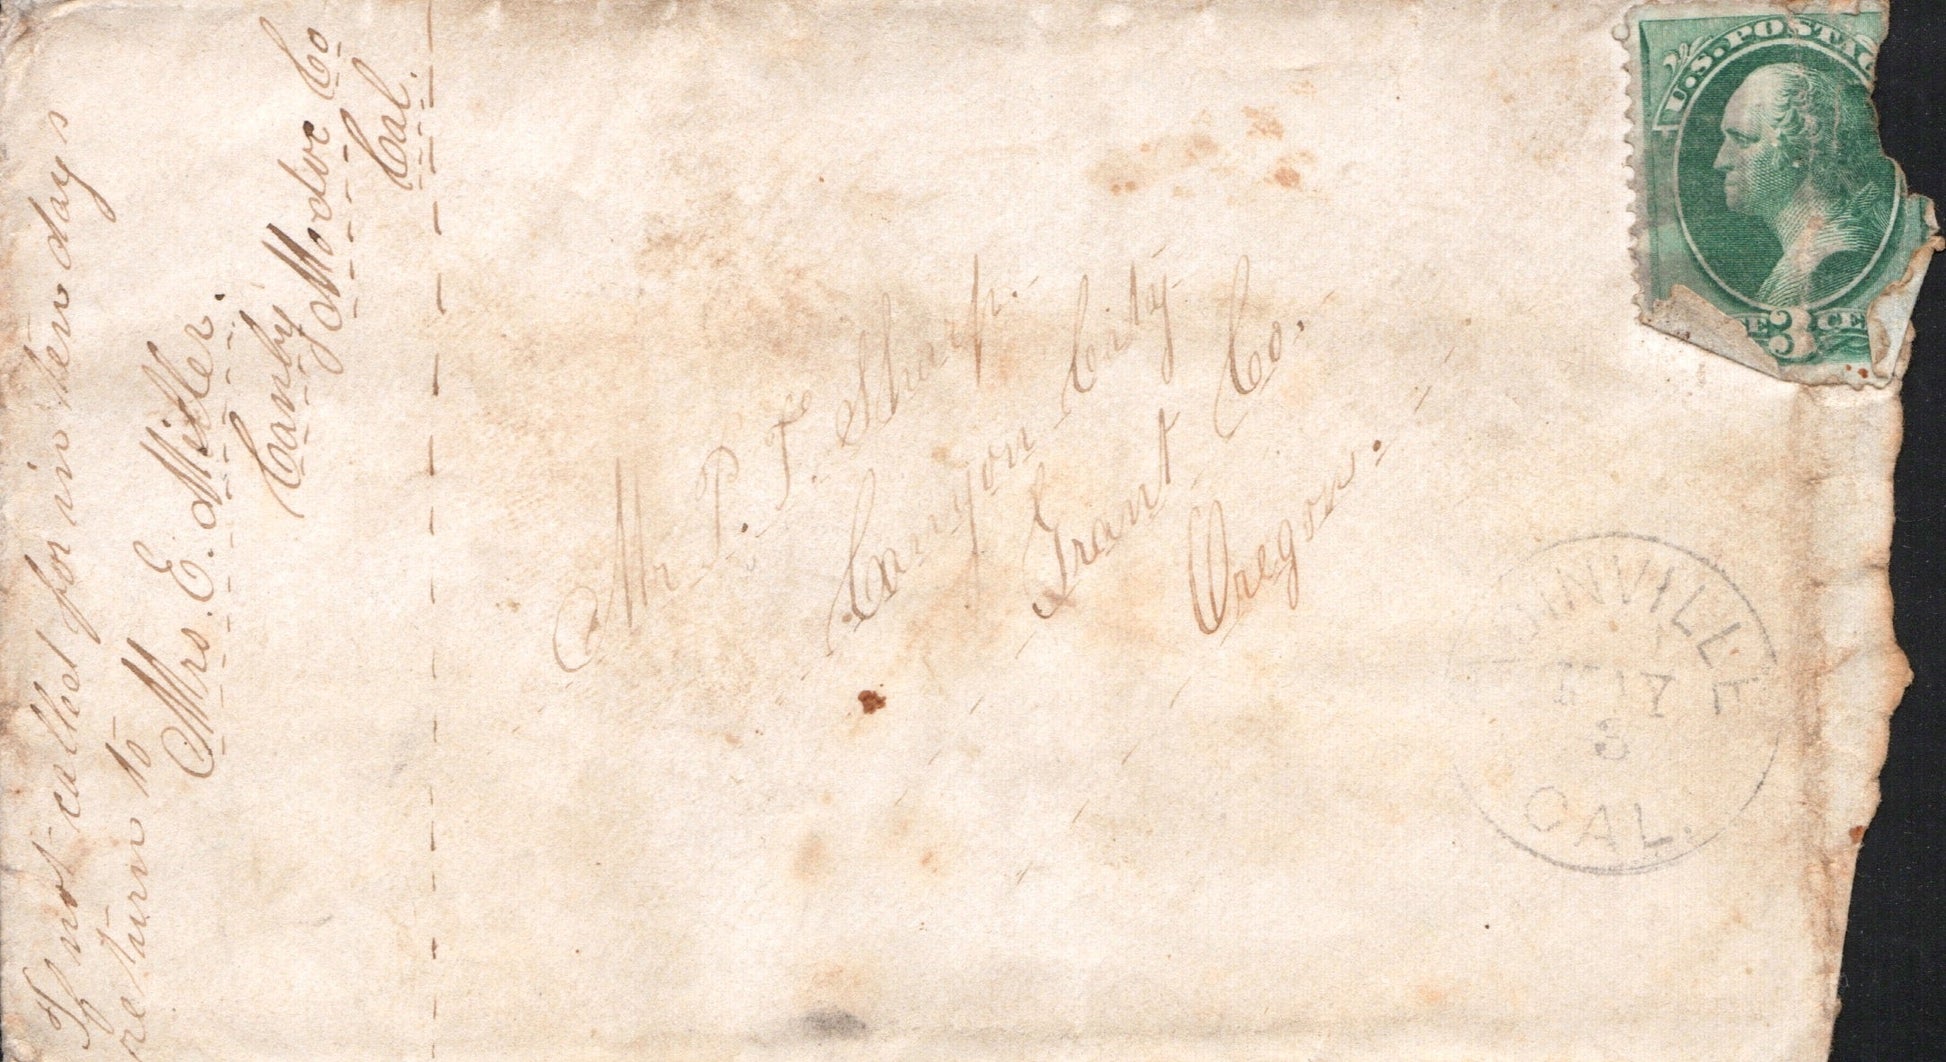 If not called for in ten days
return to
Mrs. E. Miller.
Canby
Modoc Co
Cal.
Mr P. T. Sharp.
Canyon City
Grant Co.
Oregon.
U.S. POSTAG
3 CE
CAL.